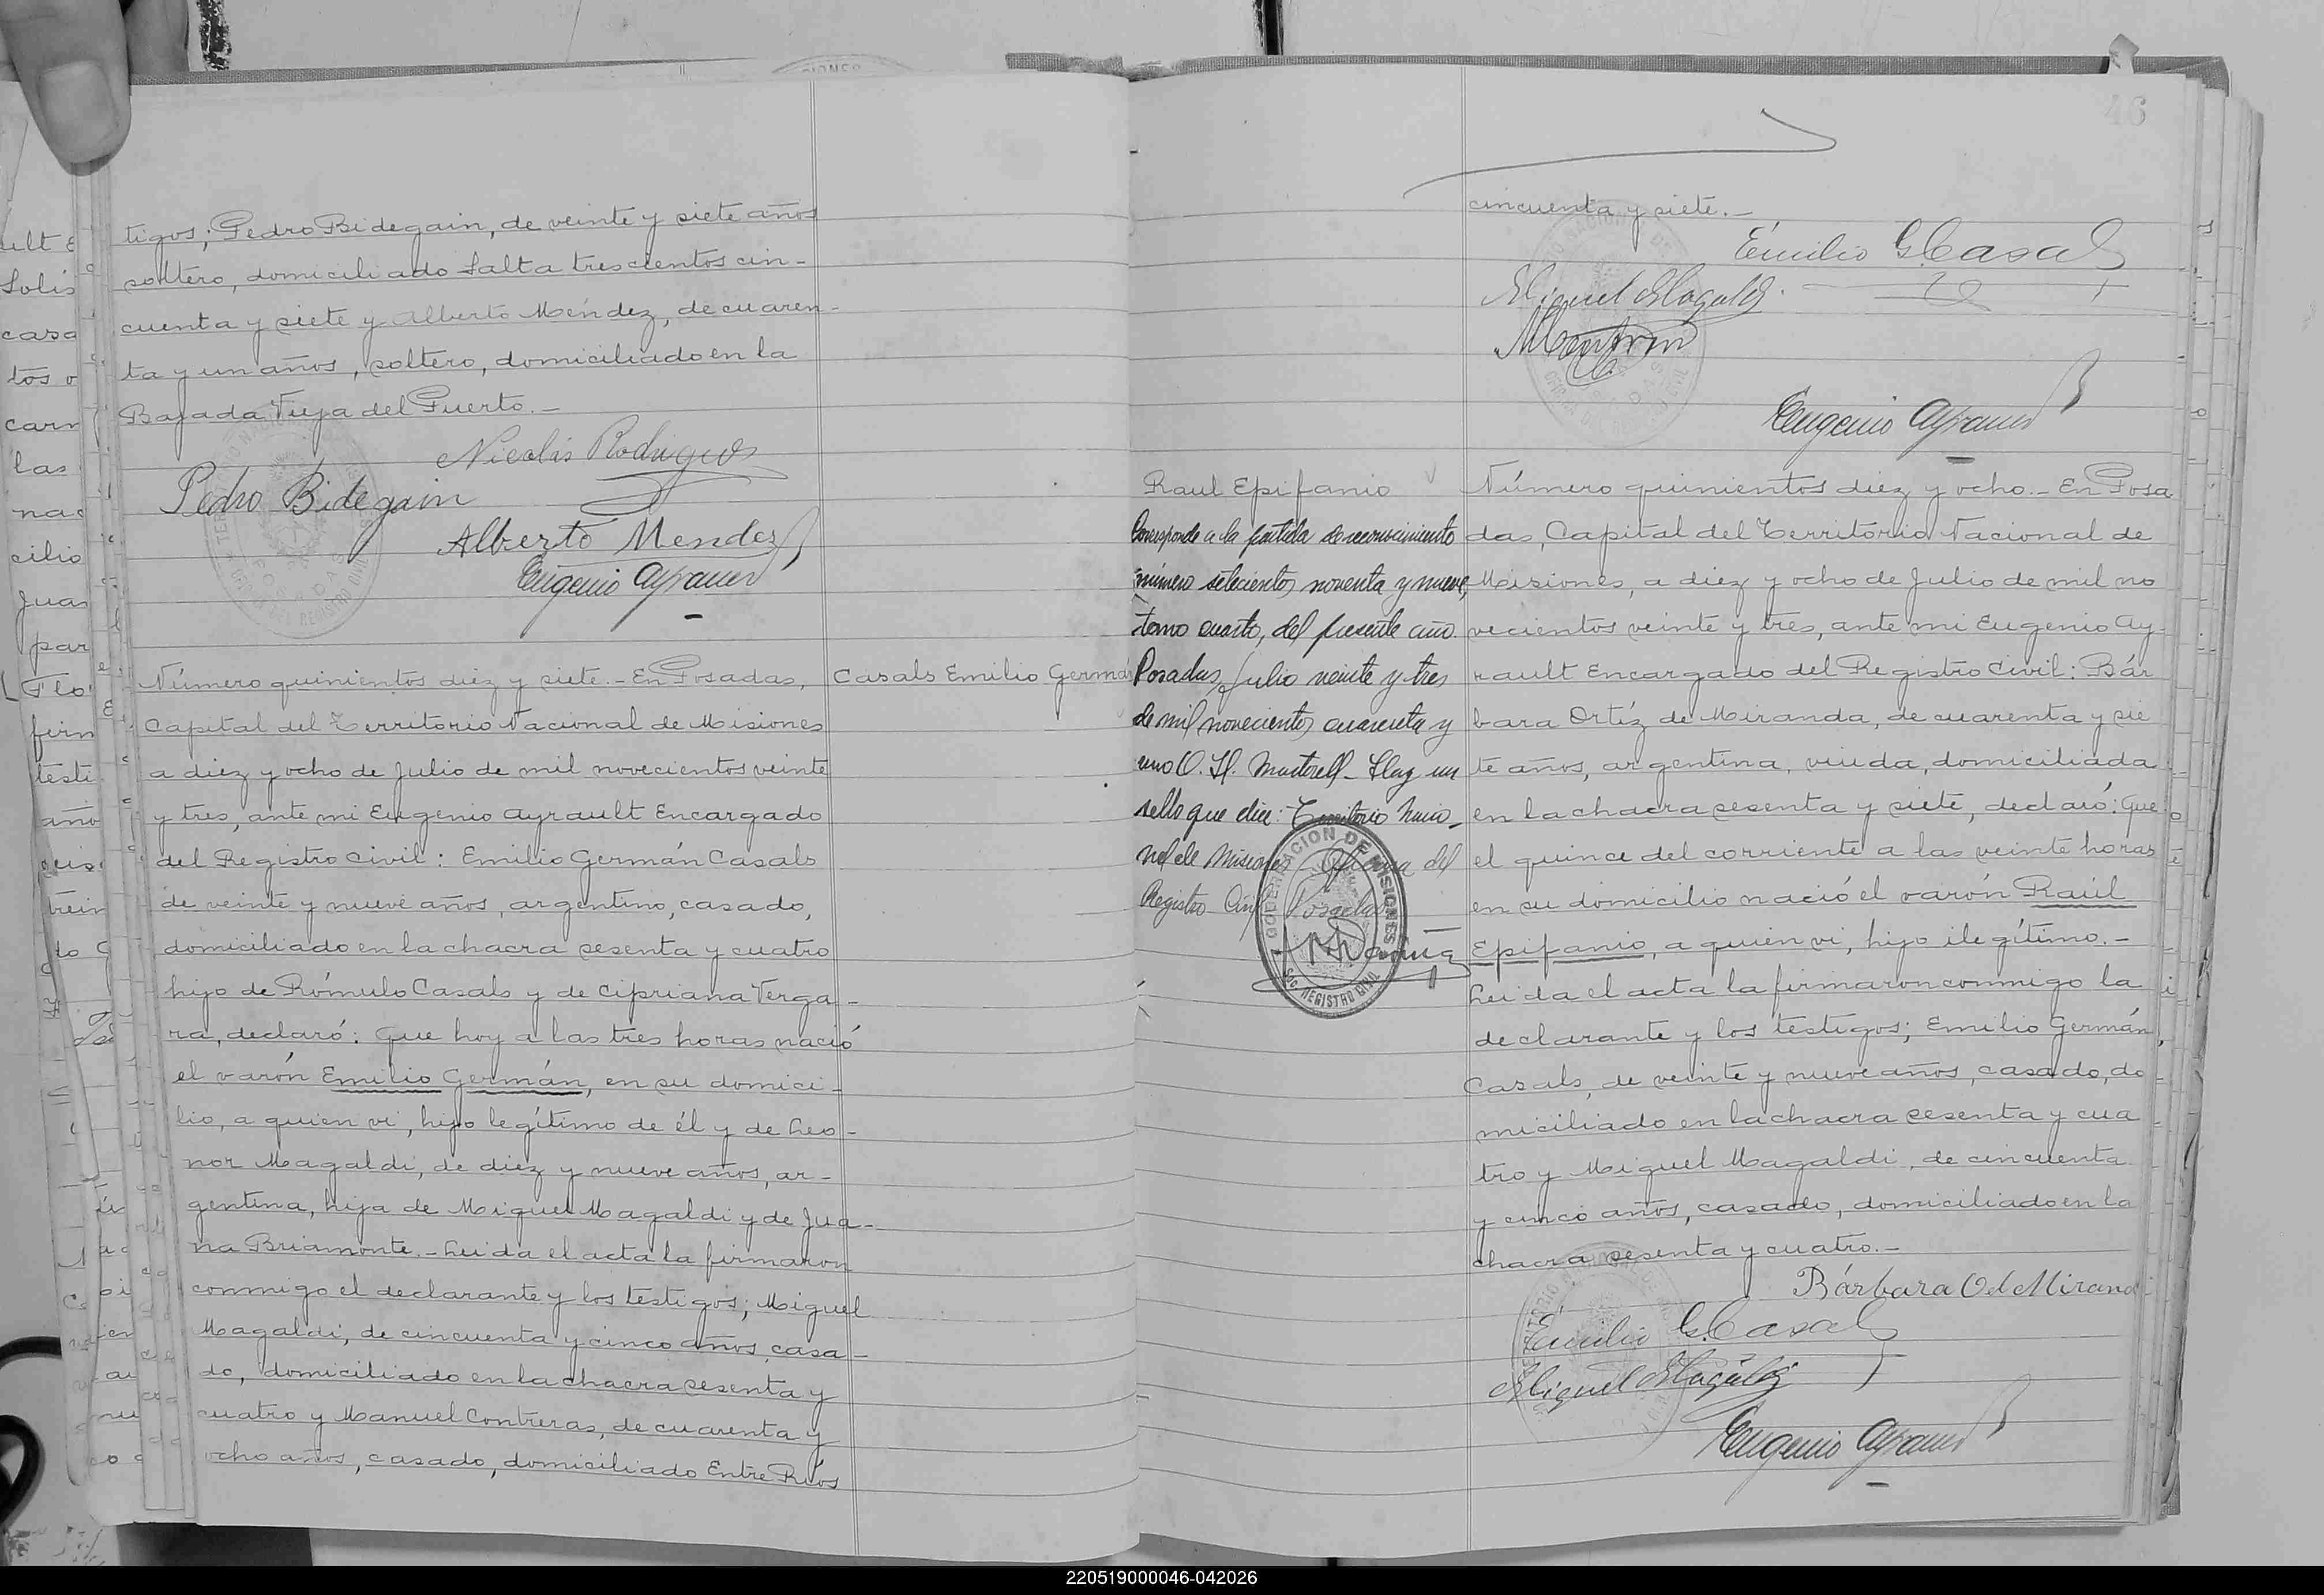 tigos; Pedro Bidegain, de veinte y siete años
soltero, domiciliado Salta trescientos cin-
cuenta y siete y Alberto Méndez, de cuaren-
ta y un años, soltero, domiciliado en la
Bajada Vieja del Puerto.-
Nicolás Rodrigues
Pedro Bidegain
Alberto Mendez
Eugenio Ayrault
Número quinientos diez y siete.- En Posadas,
Capital del Territorio Nacional de Misiones
a diez y ocho de Julio de mil novecientos veinte
y tres, ante mi Eugenio Ayrault Encargado
del Registro Civil: Emilio Germán Casals
de veinte y nueve años, argentino, casado,
domiciliado en la chacra sesenta y cuatro
hijo de Rómulo Casals y de Cipriana Verga-
ra, declaró: Que hoy a las tres horas nació
el varón Emilio Germán, en su domici-
lio, a quien vi, hijo legítimo de él y de Leo-
nor Magaldi, de diez y nueve años, ar-
gentina, hija de Miguel Magaldi y de Jua-
na Briamonte.- Leida el acta la firmaron
conmigo el declarante y los testigos; Miguel
Magaldi, de cincuenta y cinco años, casa-
do, domiciliado en la chacra sesenta y
cuatro y Manuel Contreras, de cuarenta y
ocho años, casado, domiciliado Entre Ríos
Casals Emilio Germá
46
cincuenta y siete.-
Emilio G. Casals
Miguel Magaldi
Eugenio Ayrault
Raul Epifanio
Corresponde a la partida de reconocimiento
número setecientos noventa y nueve,
tomo cuarto, del presente año.
Posadas, Julio veinte y tres
de mil novecientos cuarenta y
uno O. H. Martorell - Hay un
sello que dice: Territorio Nacio-
nal de Misiones - Oficina del
Registro Civil Posadas
GOBERNACION DE MISIONES
SEC. REGISTRO CIVIL
Número quinientos diez y ocho.- En Posa
das, Capital del Territorio Nacional de
Misiones, a diez y ocho de Julio de mil no
vecientos veinte y tres, ante mi Eugenio Ay-
rault Encargado del Registro Civil: Bár
bara Ortíz de Miranda, de cuarenta y sie
te años, argentina, viuda, domiciliada
en la chacra sesenta y siete, declaró: Que
el quince del corriente a las veinte horas
en su domicilio nació el varón Raúl
Epifanio, a quien vi, hijo ilegítimo.-
Leida el acta la firmaron conmigo la
declarante y los testigos; Emilio Germán
Casals, de veinte y nueve años, casado, do
miciliado en la chacra sesenta y cua
tro y Miguel Magaldi, de cincuenta
y cinco años, casado, domiciliado en la
chacra sesenta y cuatro.-
Bárbara O de Mirand
Emilio G. Casals
Miguel Magaldi
Eugenio Ayrault
220519000046-042026